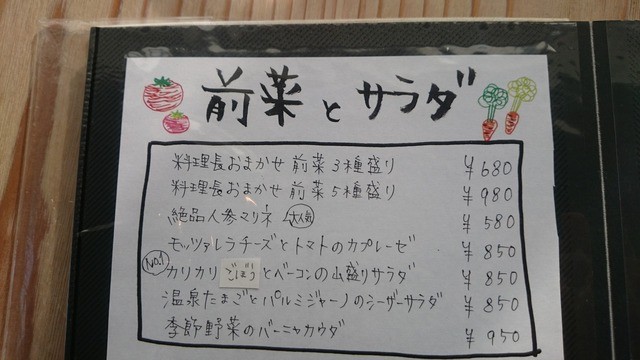 前菜とサラダ
料理長おまかせ 前菜3種盛り ¥680
料理長おまかせ 前菜5種盛り ¥980
絶品人参マリネ 大人気 ¥580
モッツァレラチーズとトマトのカプレーゼ ¥850
No.1 カリカリごぼうとベーコンの山盛りサラダ ¥850
温泉たまごとパルミジャーノのシーザーサラダ ¥850
季節野菜のバーニャカウダ ¥950